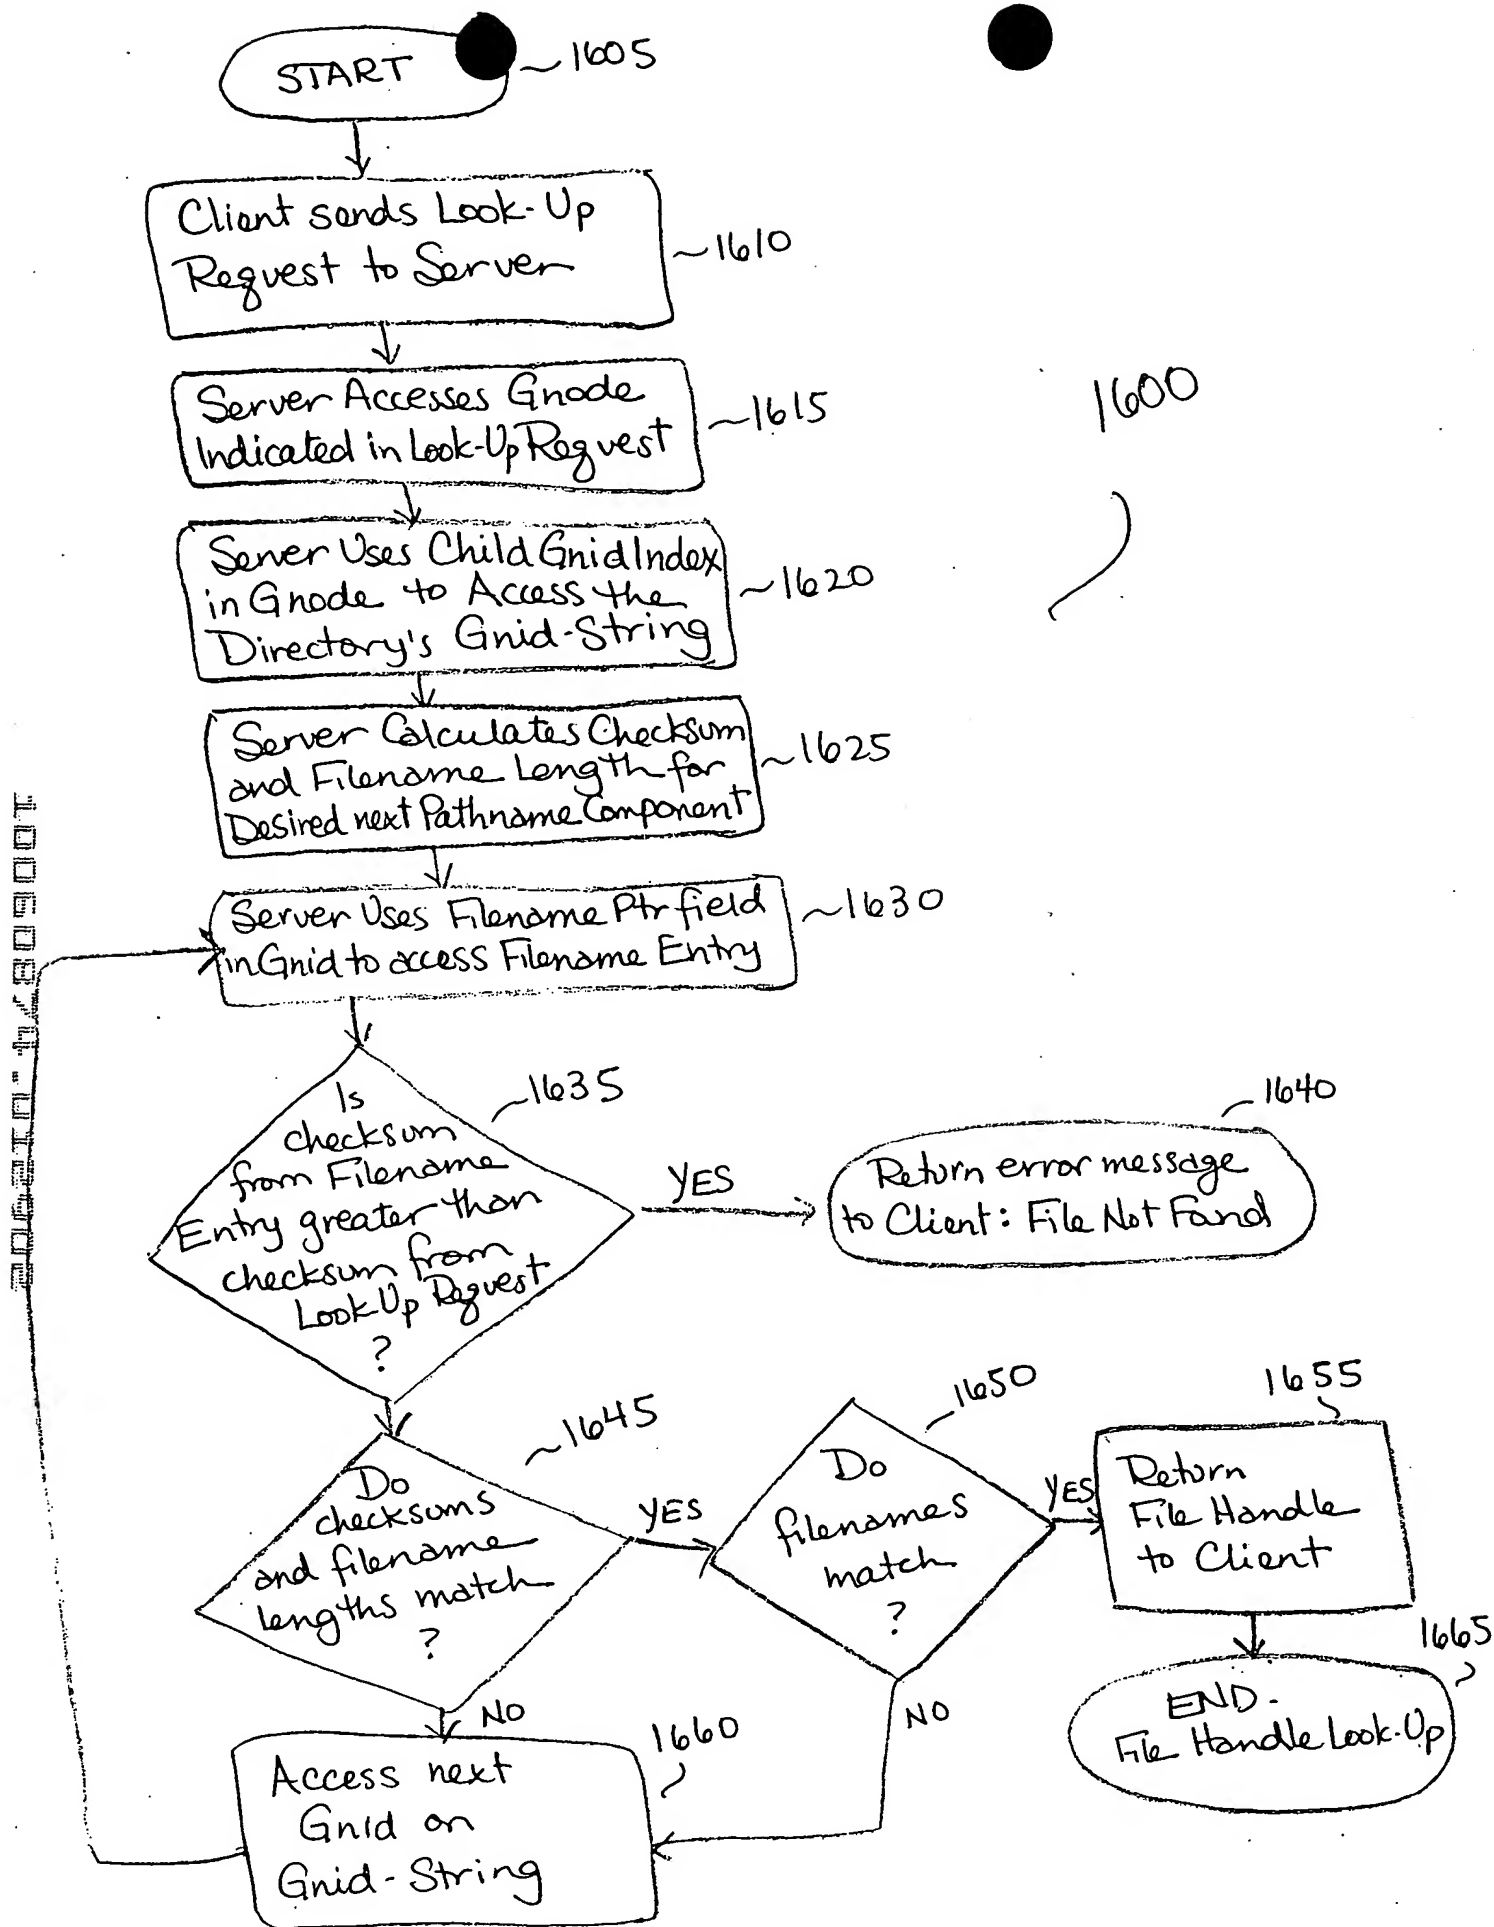 START
1605
Client sends Look-Up
Request to Server
1610
Server Accesses Gnode
Indicated in Look-Up Request
1615
1600
Server Uses Child Gnid Index
in Gnode to Access the
Directory's Gnid-String
1620
Server Calculates Checksum
and Filename Length for
Desired next Pathname Component
1625
Server Uses Filename Ptr field
in Gnid to access Filename Entry
1630
Is
checksum
from Filename
Entry greater than
checksum from
Look-Up Request
?
1635
YES
1640
Return error message
to Client: File Not Found
Do
checksums
and filename
lengths match
?
1645
YES
NO
Do
filenames
match
?
1650
YES
NO
1655
Return
File Handle
to Client
1665
END -
File Handle Look-Up
1660
Access next
Gnid on
Gnid-String